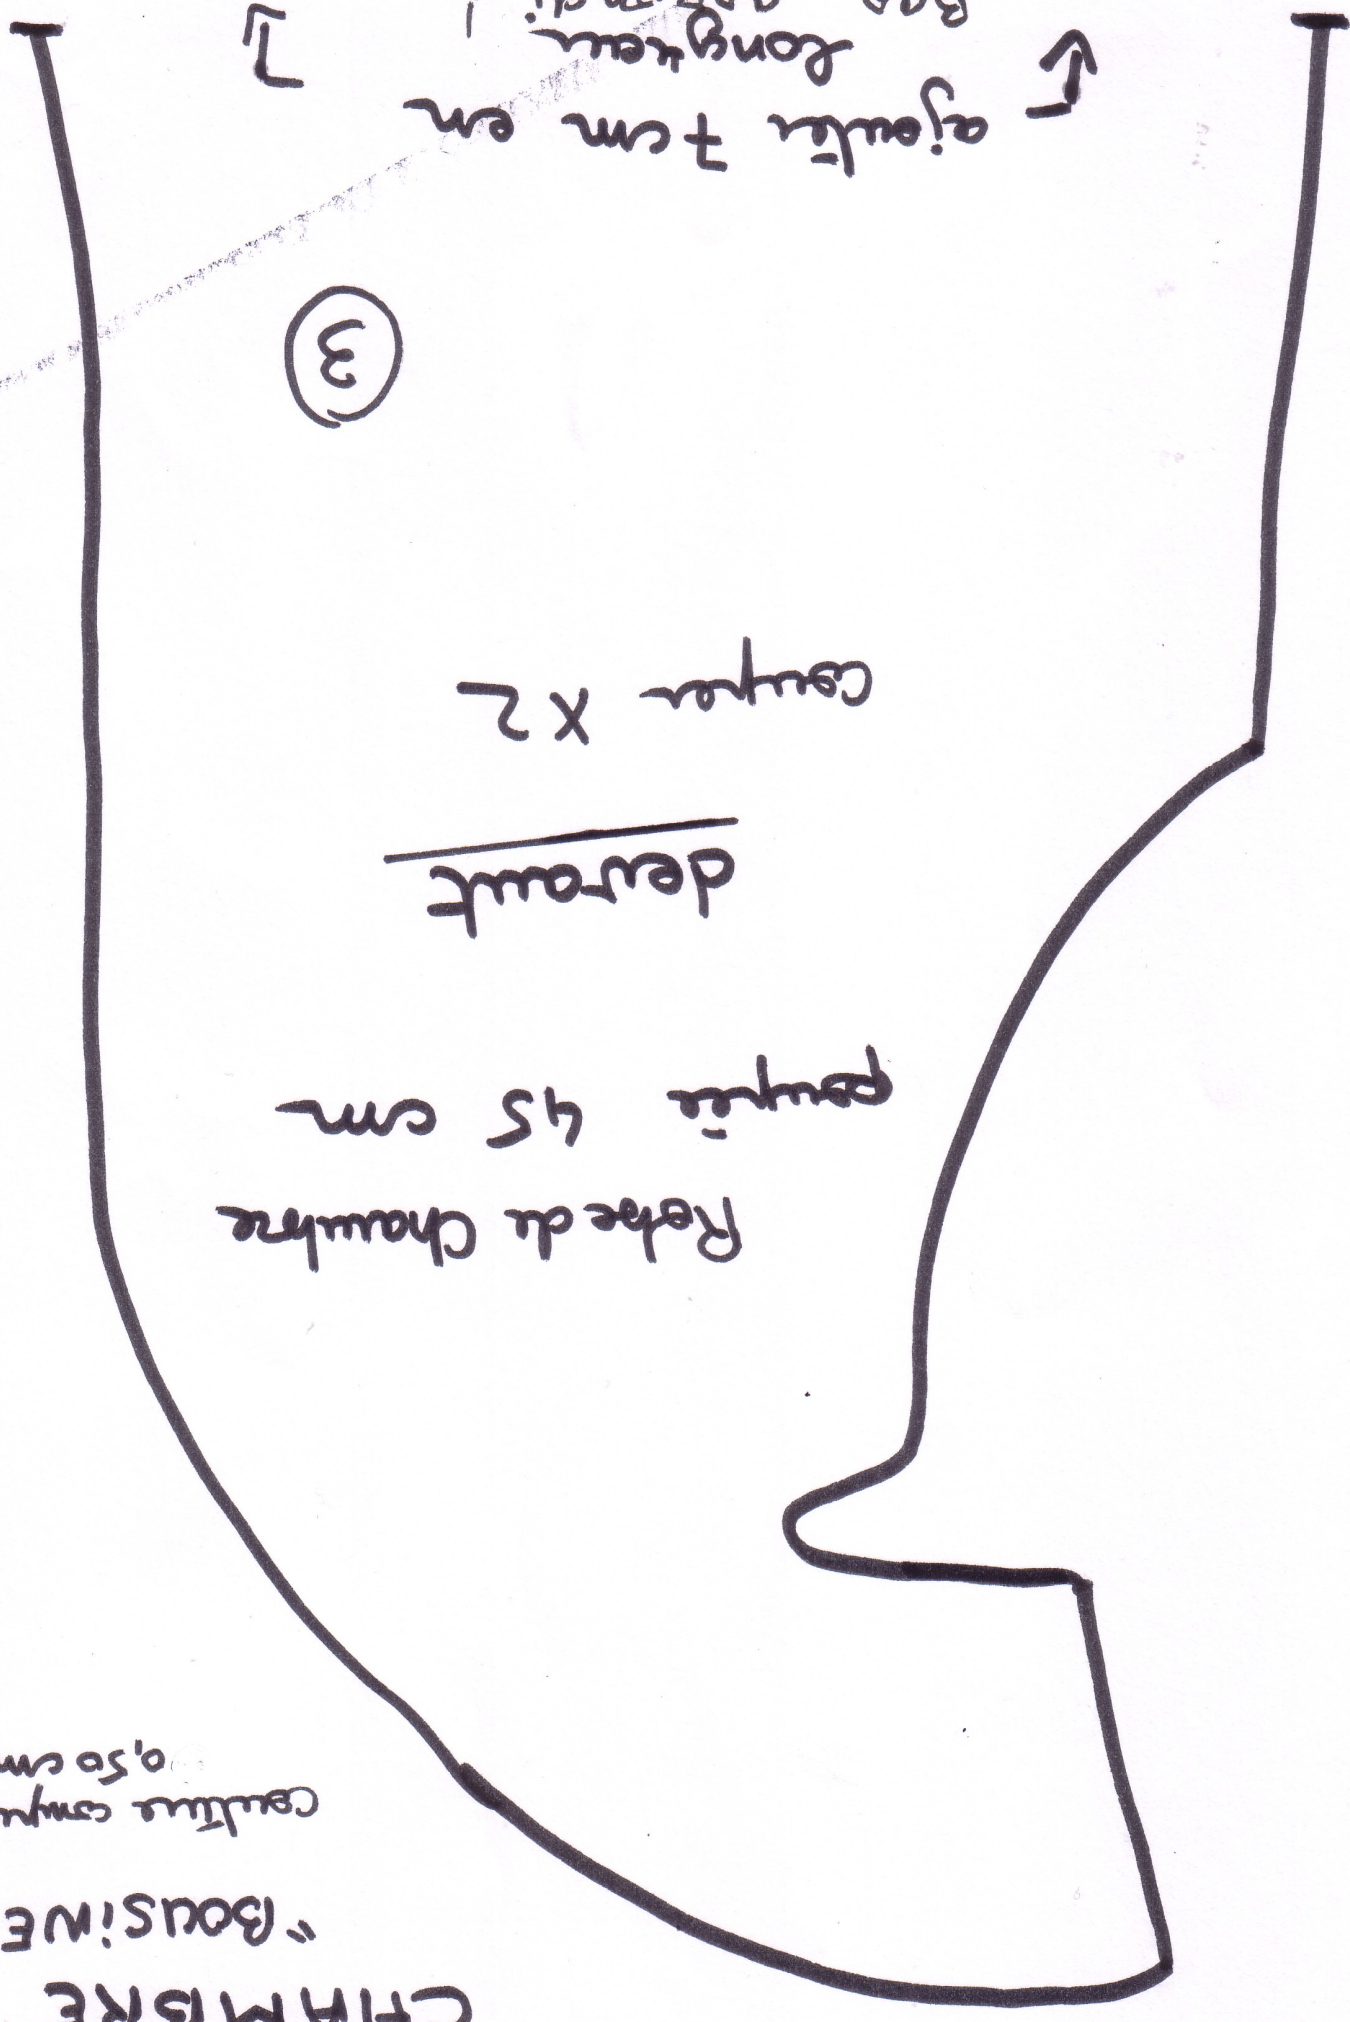 CHAMBRE
"BOUSINE
couture
0,50 cm
Robe de Chambre
poupée 45 cm
devant
couper X2
3
ajouter 7 cm en
longueur